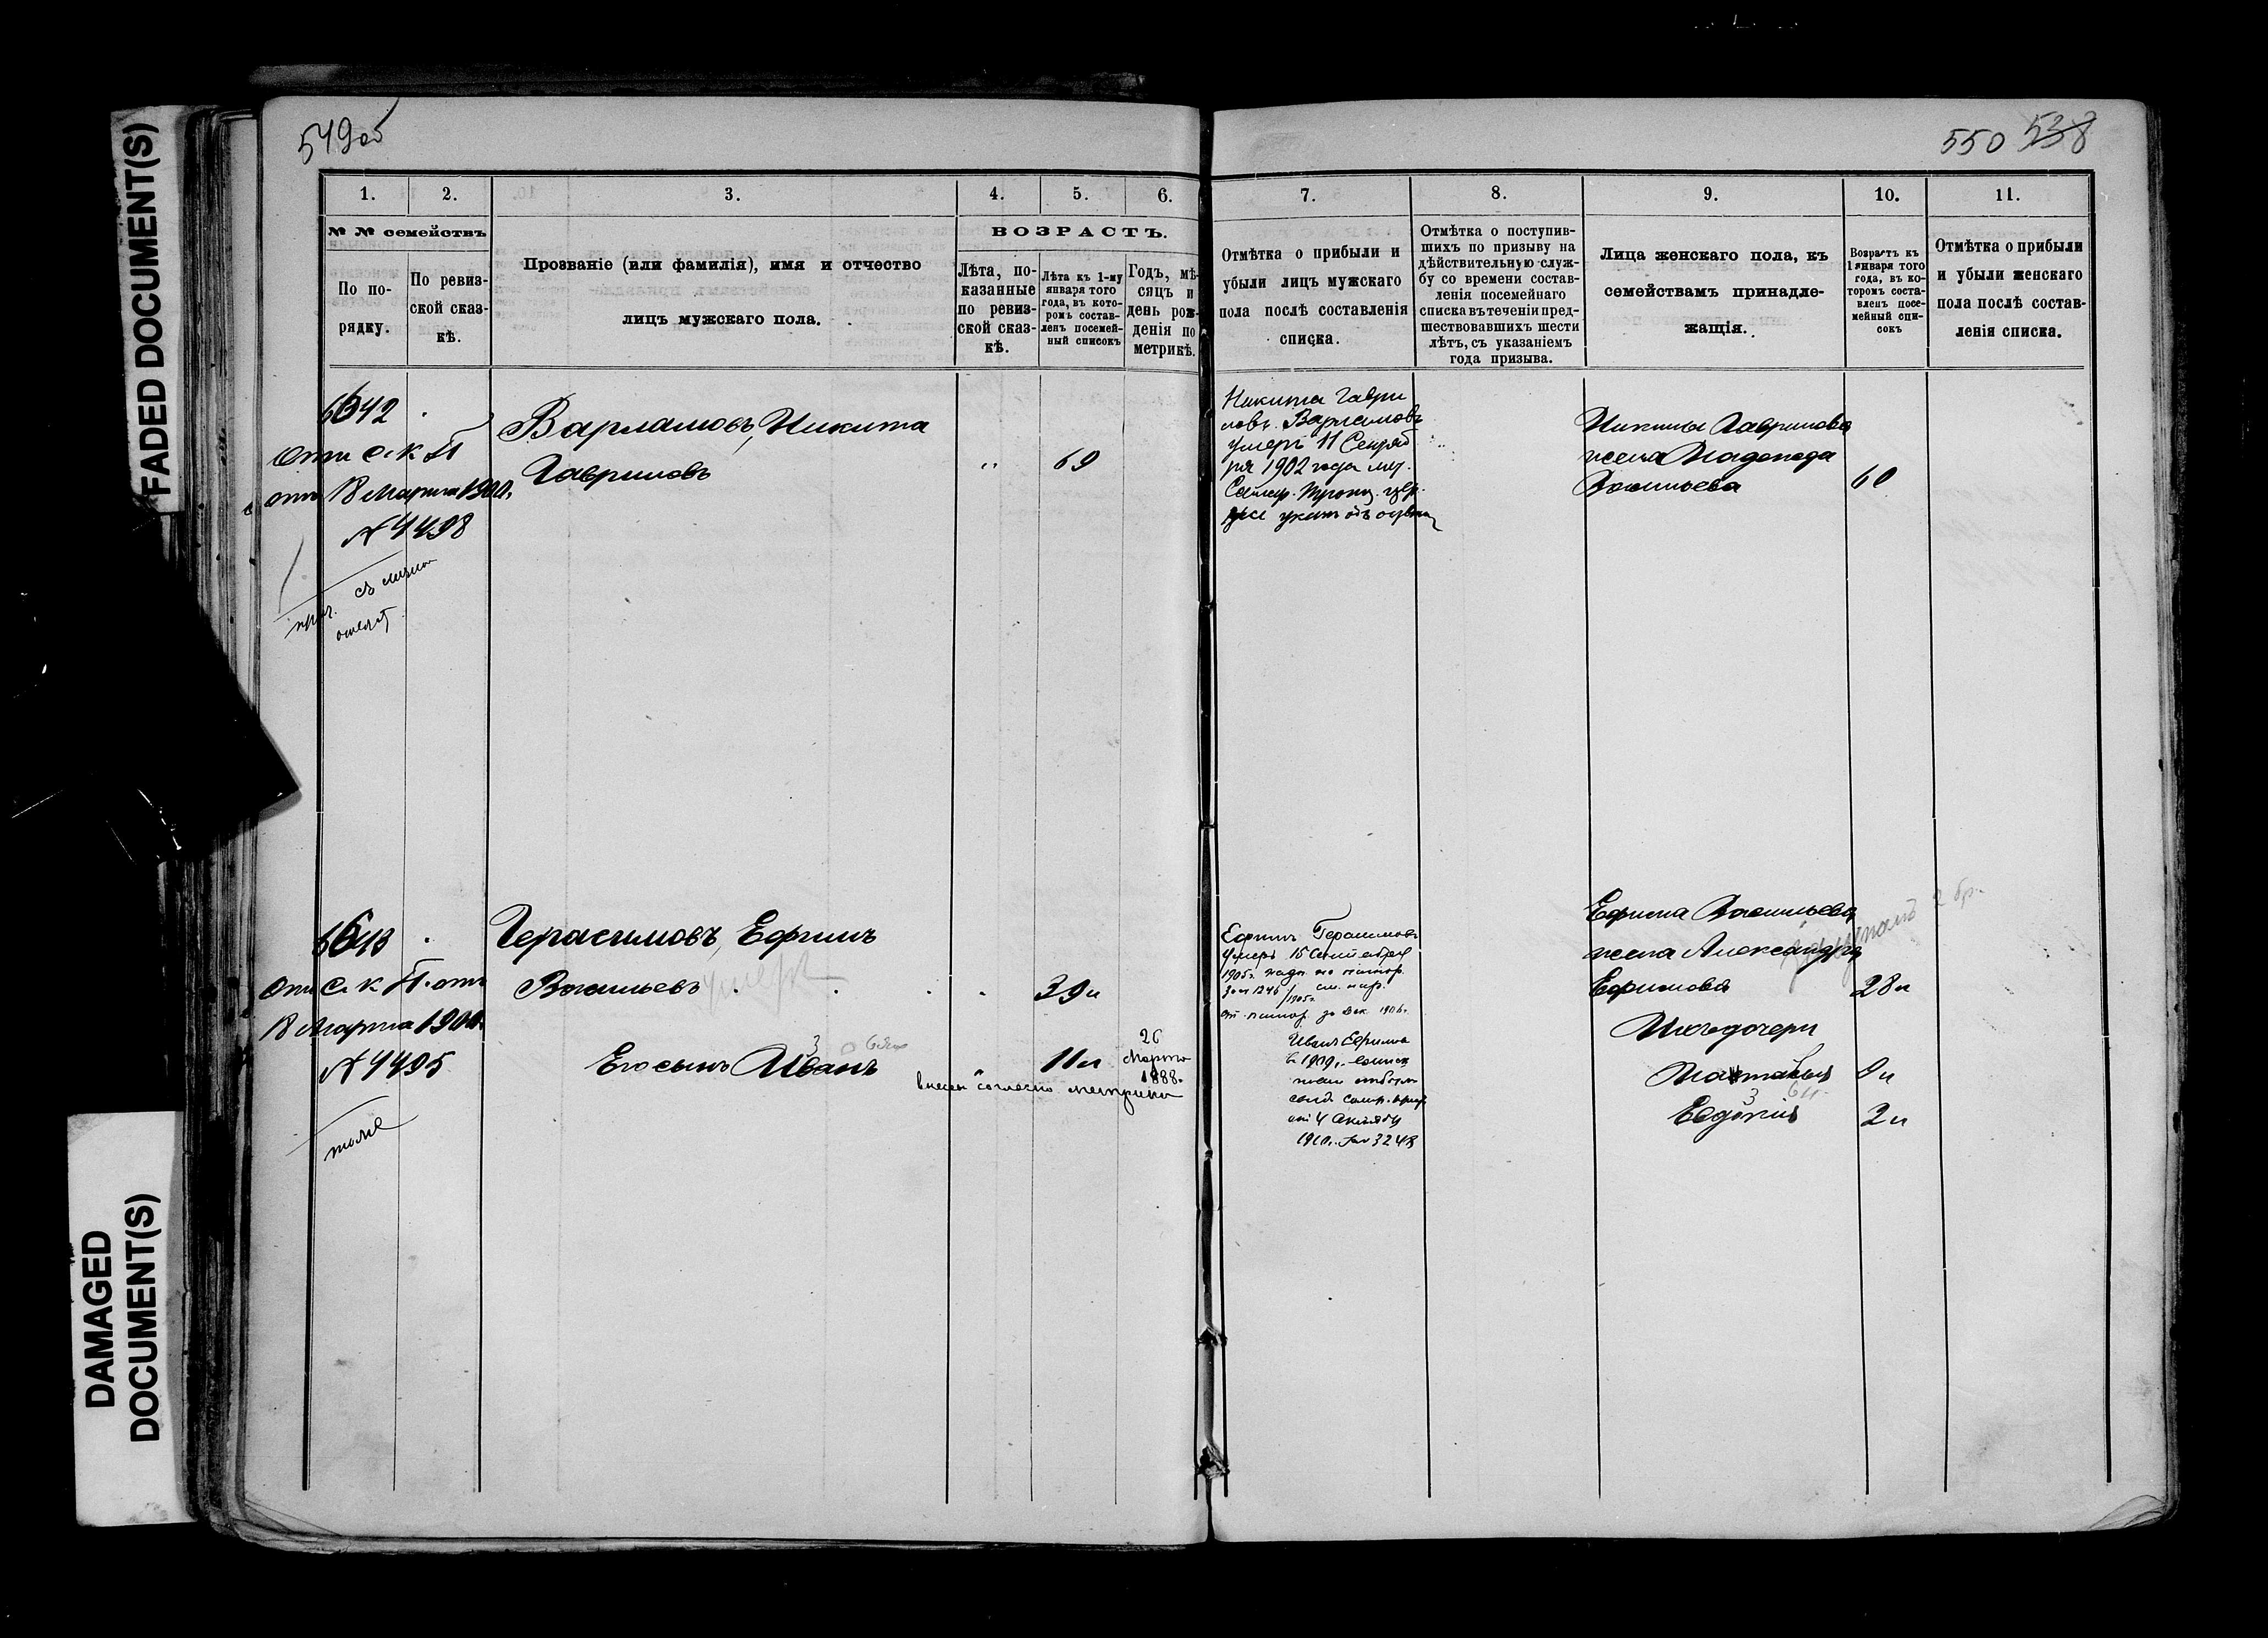 FADED DOCUMENT(S)
DAMAGED
DOCUMENT(S)
549об
550 538
1. 2. 3. 4. 5. 6. 7. 8. 9. 10. 11.
№ № семействъ
По по-
рядку.
По ревиз-
ской сказ-
кѣ.
Прозваніе (или фамилія), имя и отчество
лицъ мужскаго пола.
ВОЗРАСТЪ.
Лѣта, по-
казанные
по ревиз-
ской сказ-
кѣ.
Лѣта къ 1-му
января того
года, въ кото-
ромъ состав-
ленъ посемей-
ный списокъ
Годъ, мѣ-
сяцъ и
день рож-
денія по
метрикѣ.
Отмѣтка о прибыли и
убыли лицъ мужскаго
пола послѣ составленія
списка.
Отмѣтка о поступив-
шихъ по призыву на
дѣйствительную служ-
бу со времени состав-
ленія посемейнаго
списка въ теченіи пред-
шествовавшихъ шести
лѣтъ, съ указаніемъ
года призыва.
Лица женскаго пола, къ
семействамъ принадле-
жащія.
Возрастъ къ
1 января того
года, въ ко-
торомъ соста-
вленъ посе-
мейный спи-
сокъ
Отмѣтка о прибыли
и убыли женскаго
пола послѣ состав-
ленія списка.
6642
С. К. П.
отъ 18 Марта 1900.
№ 4498
Варламовъ, Никита
Гавриловъ
69
Никита Гаври
ловъ Варламовъ
умеръ 11 Сентяб
ря 1902 года
Никиты Гаврилова
жена Надежда
Васильева
60
6643
С. К. П. отъ
18 Марта 1900.
№ 4495
тоже
Герасимовъ, Ефимъ
Васильевъ умеръ
39 л
Его сынъ Иванъ
11 л
26
Марта
1888.
внесен согласно метрики
Ефимъ Герасимовъ
умеръ 15 Сентября
1905 г.
Иванъ Ефимовъ
въ 1909 г.
1910 г. за № 3248
Ефима Васильева
жена Александра
Ефимова
28 л
Ихъ дочери
9 л
Евдокія
2 л